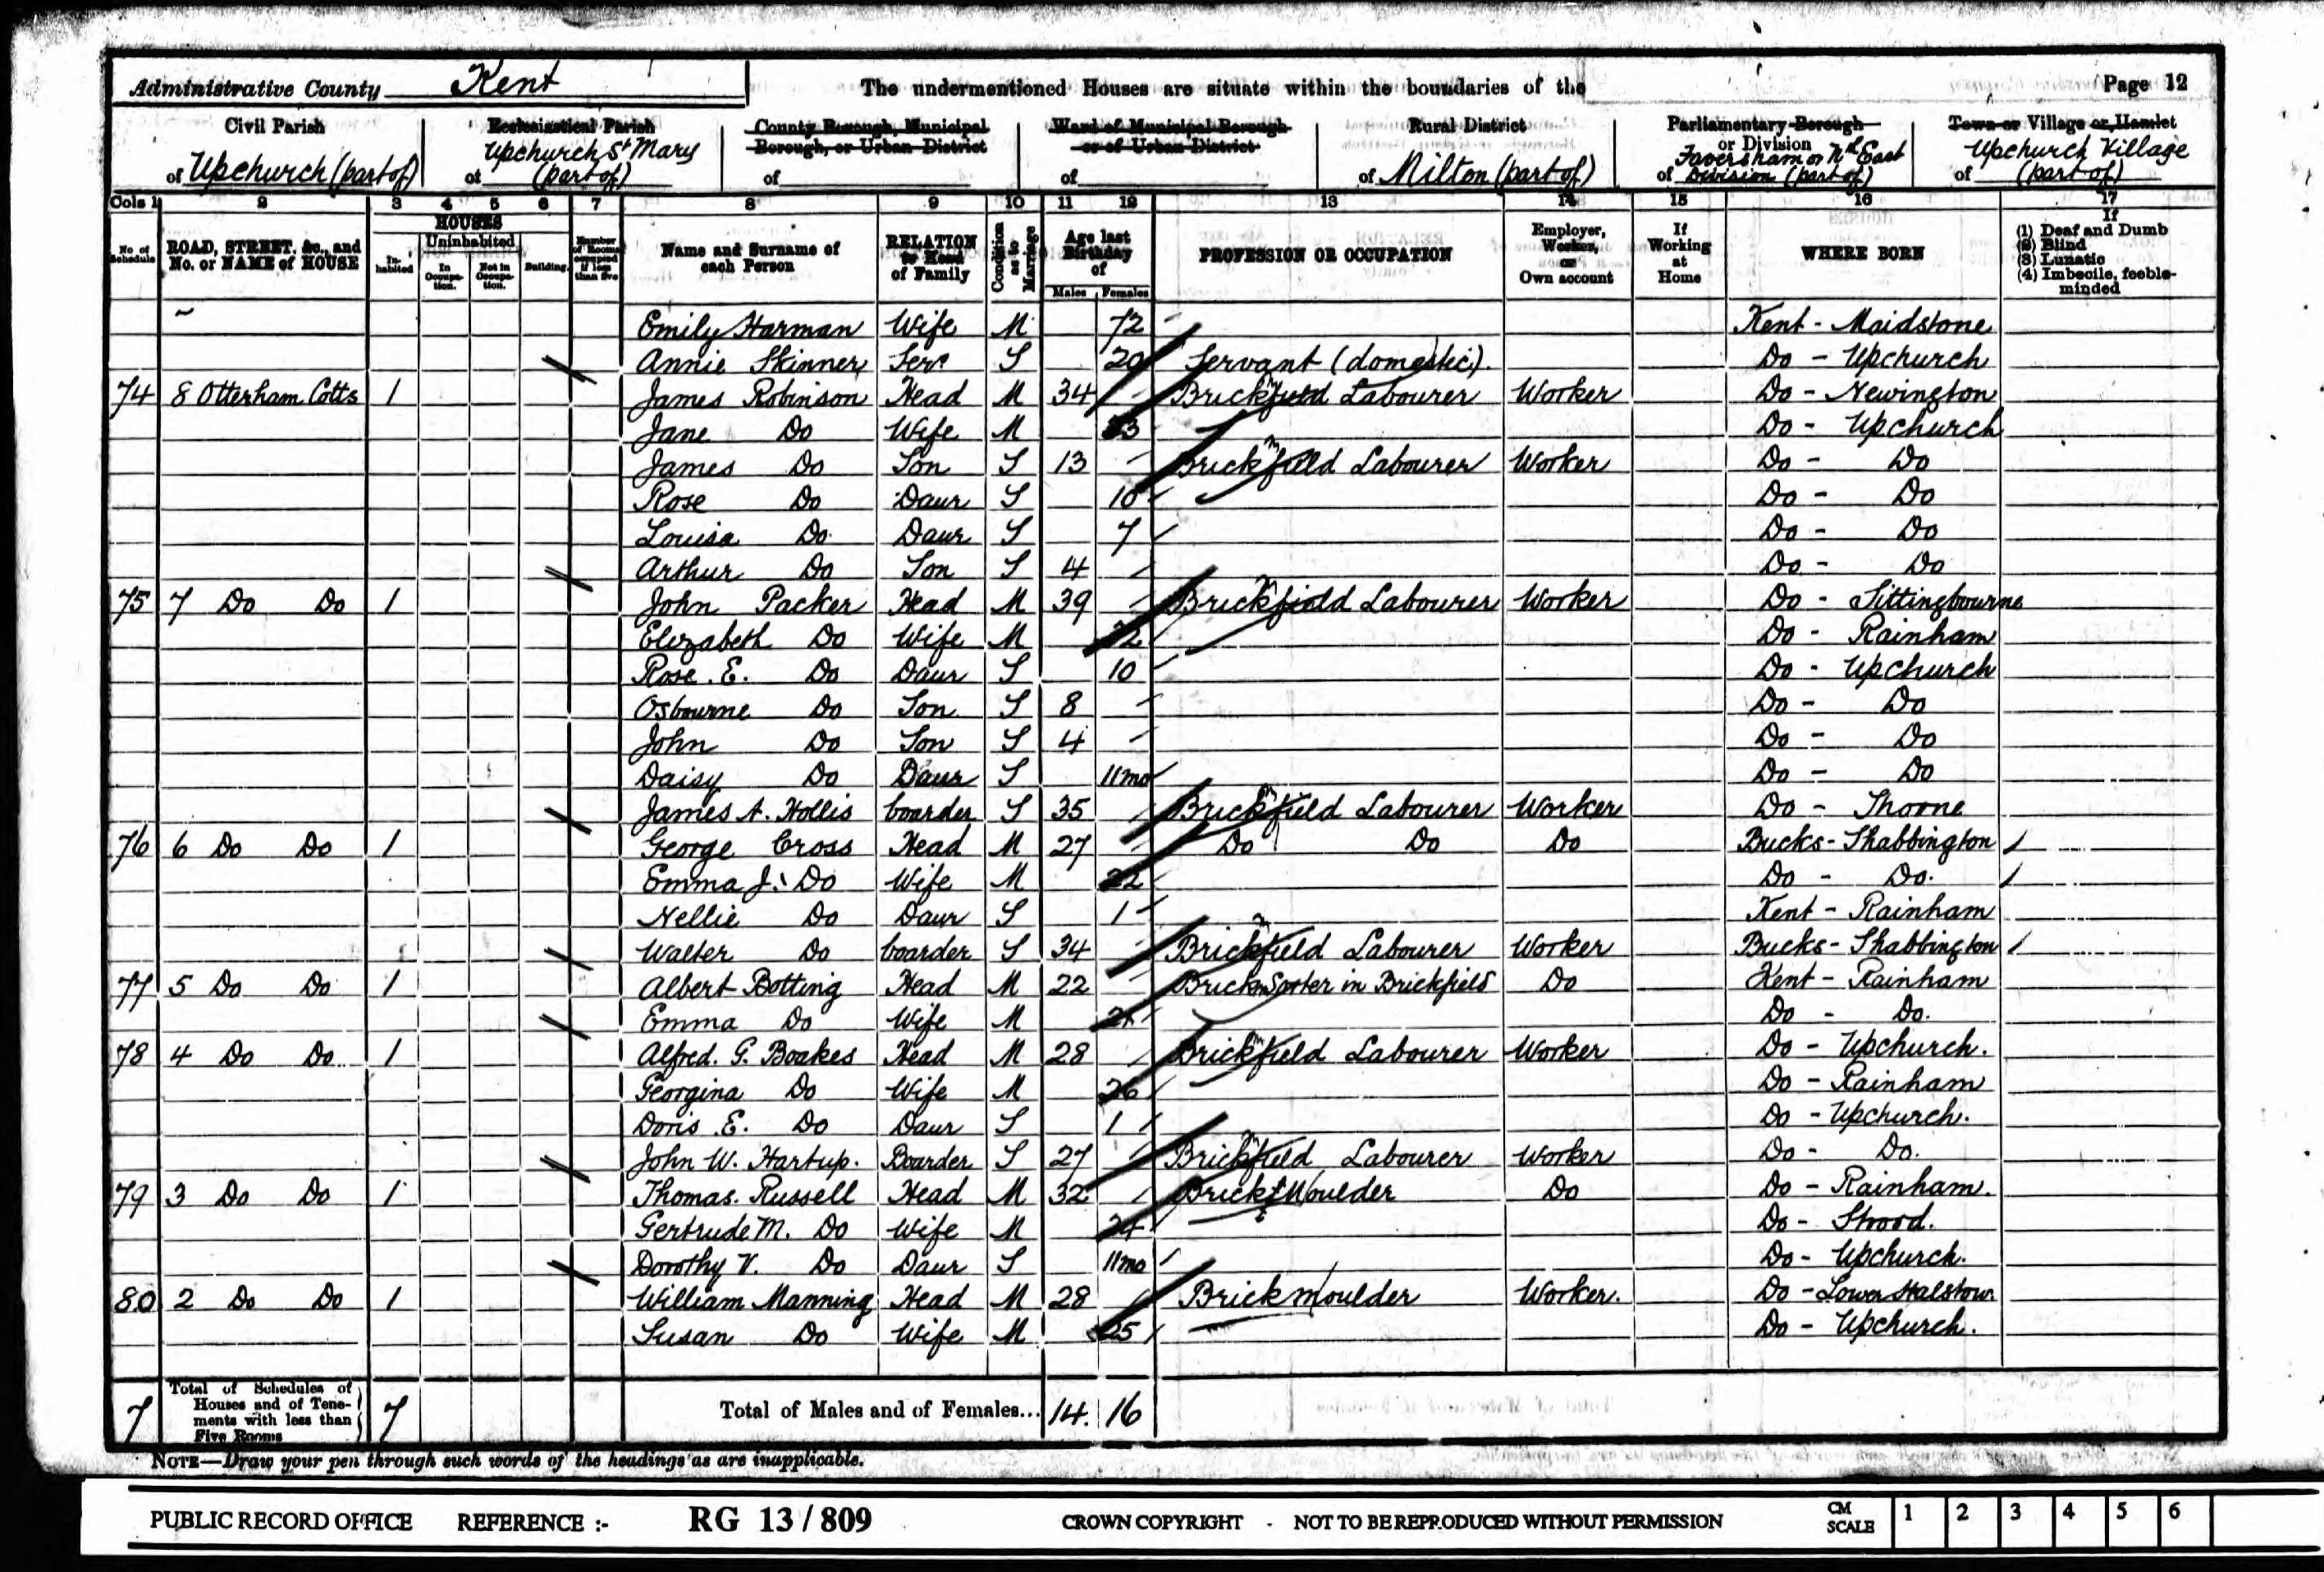 Administrative County Kent
The undermentioned Houses are situate within the boundaries of the
Page 12
Civil Parish of Upchurch (part of)
Ecclesiastical Parish of Upchurch St Mary (part of)
County Borough, Municipal Borough, or Urban District of
Ward of Municipal Borough or of Urban District of
Rural District of Milton (part of)
Parliamentary Borough or Division of Faversham or Nth East Division (part of)
Town or Village or Hamlet of Upchurch Village (part of)
Cols 1 2 3 4 5 6 7 8 9 10 11 12 13 14 15 16 17
No. of Schedule
ROAD, STREET, &c., and No. or NAME of HOUSE
HOUSES
Inhabited
Uninhabited
In Occupation.
Not in Occupation.
Building.
Number of Rooms occupied if less than five
Name and Surname of each Person
RELATION to Head of Family
Condition as to Marriage
Age last Birthday of
Males Females
PROFESSION OR OCCUPATION
Employer, Worker, or Own account
If Working at Home
WHERE BORN
If
(1) Deaf and Dumb
(2) Blind
(3) Lunatic
(4) Imbecile, feeble-minded
Emily Harman Wife M 72 Kent - Maidstone
Annie Skinner Serv S 20 Servant (domestic). Do - Upchurch
74 8 Otterham Cotts 1 James Robinson Head M 34 Brickfield Labourer Worker Do - Newington
Jane Do Wife M 33 Do - Upchurch
James Do Son S 13 Brickfield Labourer Worker Do - Do
Rose Do Daur S 10 Do - Do
Louisa Do Daur S 7 Do - Do
Arthur Do Son S 4 Do - Do
75 7 Do Do 1 John Packer Head M 39 Brickfield Labourer Worker Do - Sittingbourne
Elizabeth Do Wife M Do - Rainham
Rose. E. Do Daur S 10 Do - Upchurch
Osbourne Do Son S 8 Do - Do
John Do Son S 4 Do - Do
Daisy Do Daur S 11mo Do - Do
James A. Hollis boarder S 35 Brickfield Labourer Worker Do - Throne
76 6 Do Do 1 George Cross Head M 27 Do Do Do Bucks - Shabbington
Emma J. Do Wife M 22 Do - Do.
Nellie Do Daur S 1 Kent - Rainham
Walter Do boarder S 34 Brickfield Labourer Worker Bucks - Shabbington
77 5 Do Do 1 Albert Botting Head M 22 Brick Sorter in Brickfield Do Kent - Rainham
Emma Do Wife M 21 Do - Do.
78 4 Do Do 1 Alfred. G. Boakes Head M 28 Brickfield Labourer Worker Do - Upchurch.
Georgina Do Wife M 26 Do - Rainham
Doris E. Do Daur S 1 Do - Upchurch.
John W. Hartup. Boarder S 27 Brickfield Labourer Worker Do - Do.
79 3 Do Do 1 Thomas. Russell Head M 32 Brick Moulder Do Do - Rainham.
Gertrude M. Do Wife M 24 Do - Strood.
Dorothy V. Do Daur S 11mo Do - Upchurch.
80 2 Do Do 1 William Manning Head M 28 Brick moulder Worker. Do - Lower Halstow.
Susan Do Wife M 25 Do - Upchurch.
7 Total of Schedules of Houses and of Tenements with less than Five Rooms 7 Total of Males and of Females... 14. 16
NOTE—Draw your pen through such words of the headings as are inapplicable.
PUBLIC RECORD OFFICE REFERENCE :- RG 13 / 809 CROWN COPYRIGHT - NOT TO BE REPRODUCED WITHOUT PERMISSION CM SCALE 1 2 3 4 5 6